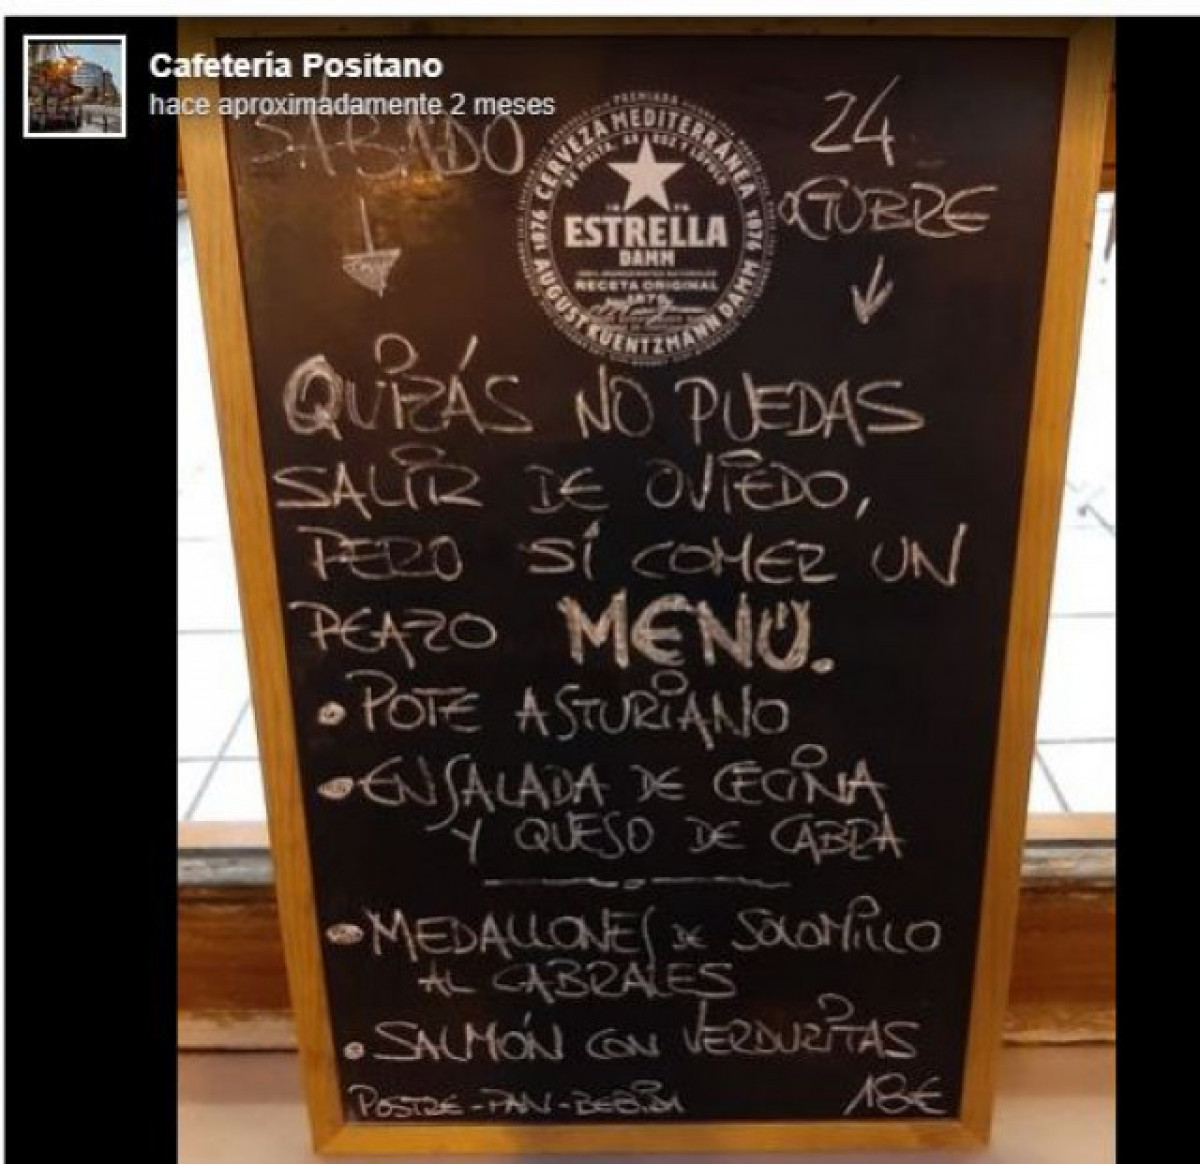 Cafetería Positano
hace aproximadamente 2 meses
SÁBADO
24
OCTUBRE
PREMIADA
CERVEZA MEDITERRÁNEA
DE MALTA, ARROZ Y LÚPULO
1876
1876
ESTRELLA
DAMM
RECETA ORIGINAL
1876
AUGUST KUENTZMANN DAMM
QUIZÁS NO PUEDAS
SALIR DE OVIEDO,
PERO SÍ COMER UN
PEAZO MENÚ.
• POTE ASTURIANO
• ENSALADA DE CECINA
Y QUESO DE CABRA
• MEDALLONES DE SOLOMILLO
AL CABRALES
• SALMÓN CON VERDURITAS
POSTRE - PAN - BEBIDA 18€